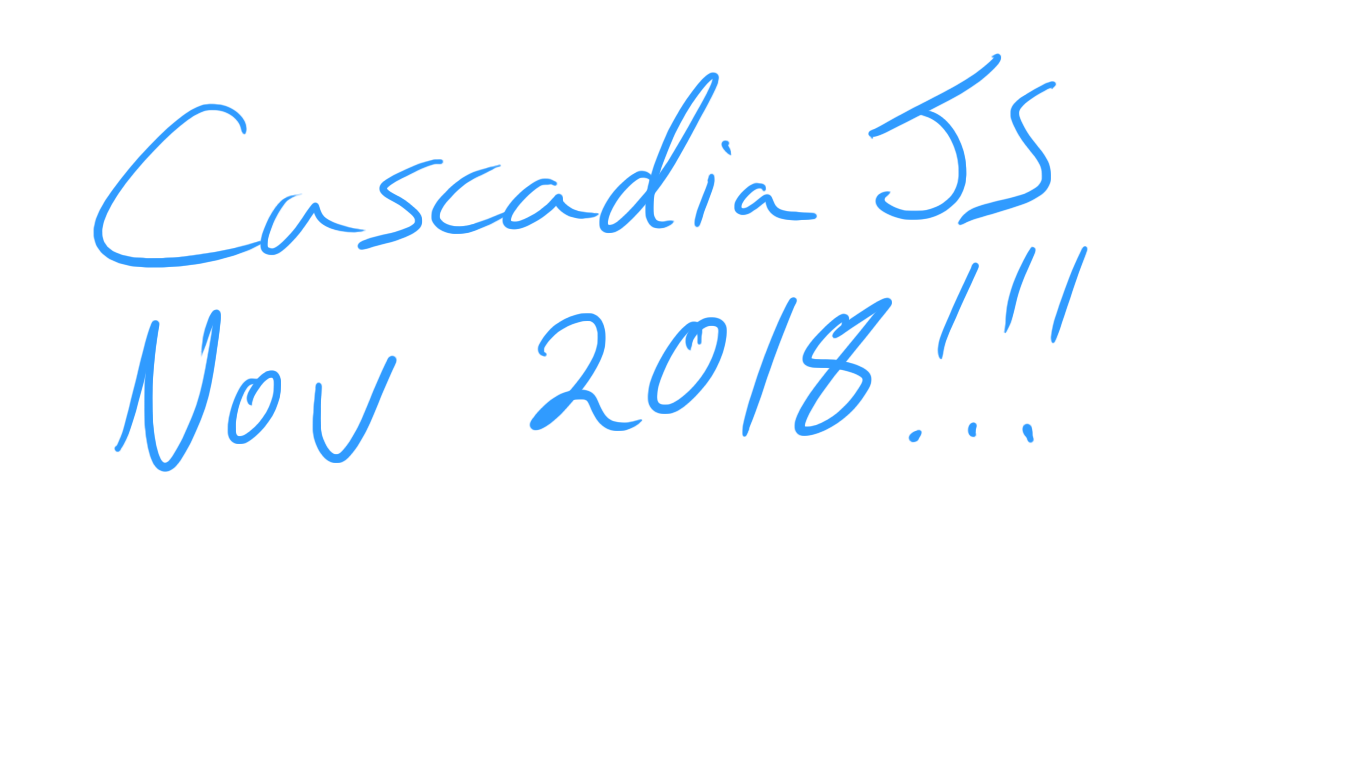 Cascadia JS
Nov 2018!!!